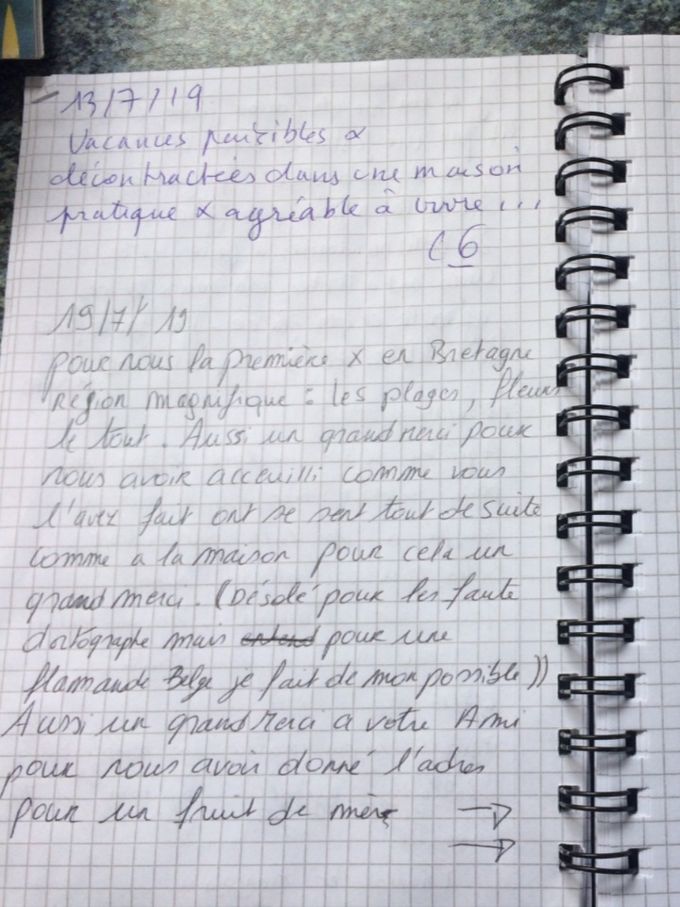 13/7/19
Vacances paisibles &
décontractées dans une maison
pratique & agréable à vivre...
(6
19/7/19
pour nous la première x en Bretagne
Région magnifique : les plages, fleurs
le tout. Aussi un grand merci pour
nous avoir acceuilli comme vous
l'avez fait ont se sent tout de suite
comme a la maison pour cela un
grand merci. (Désolé pour les faute
dortographe mais pour une
flamande Belge je fait de mon possible))
Aussi un grand merci a votre Ami
pour nous avoir donné l'adres
pour un fruit de mèr
→
→